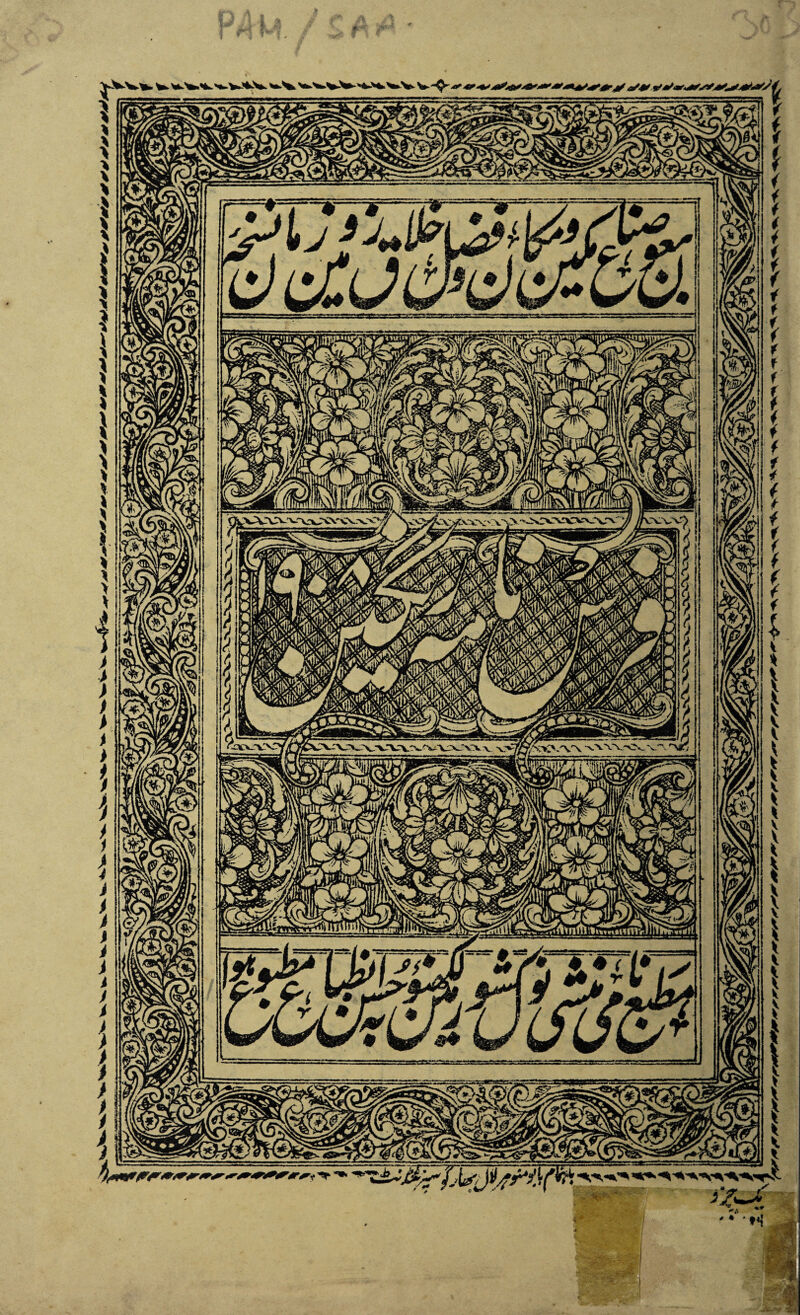 PAM. / SAA.
303
بعون صناع مکین و مکان و فضل خلاق زمین و زمان نسخہ
فرسنامہ رنگین
۱۹۰۸
مطبع نامی منشی نولکشور لکھنؤ مین بحسن انطباع مطبوع ہوا
باہتمام بابو منوہر لال بھارگو سپرنٹنڈنٹ